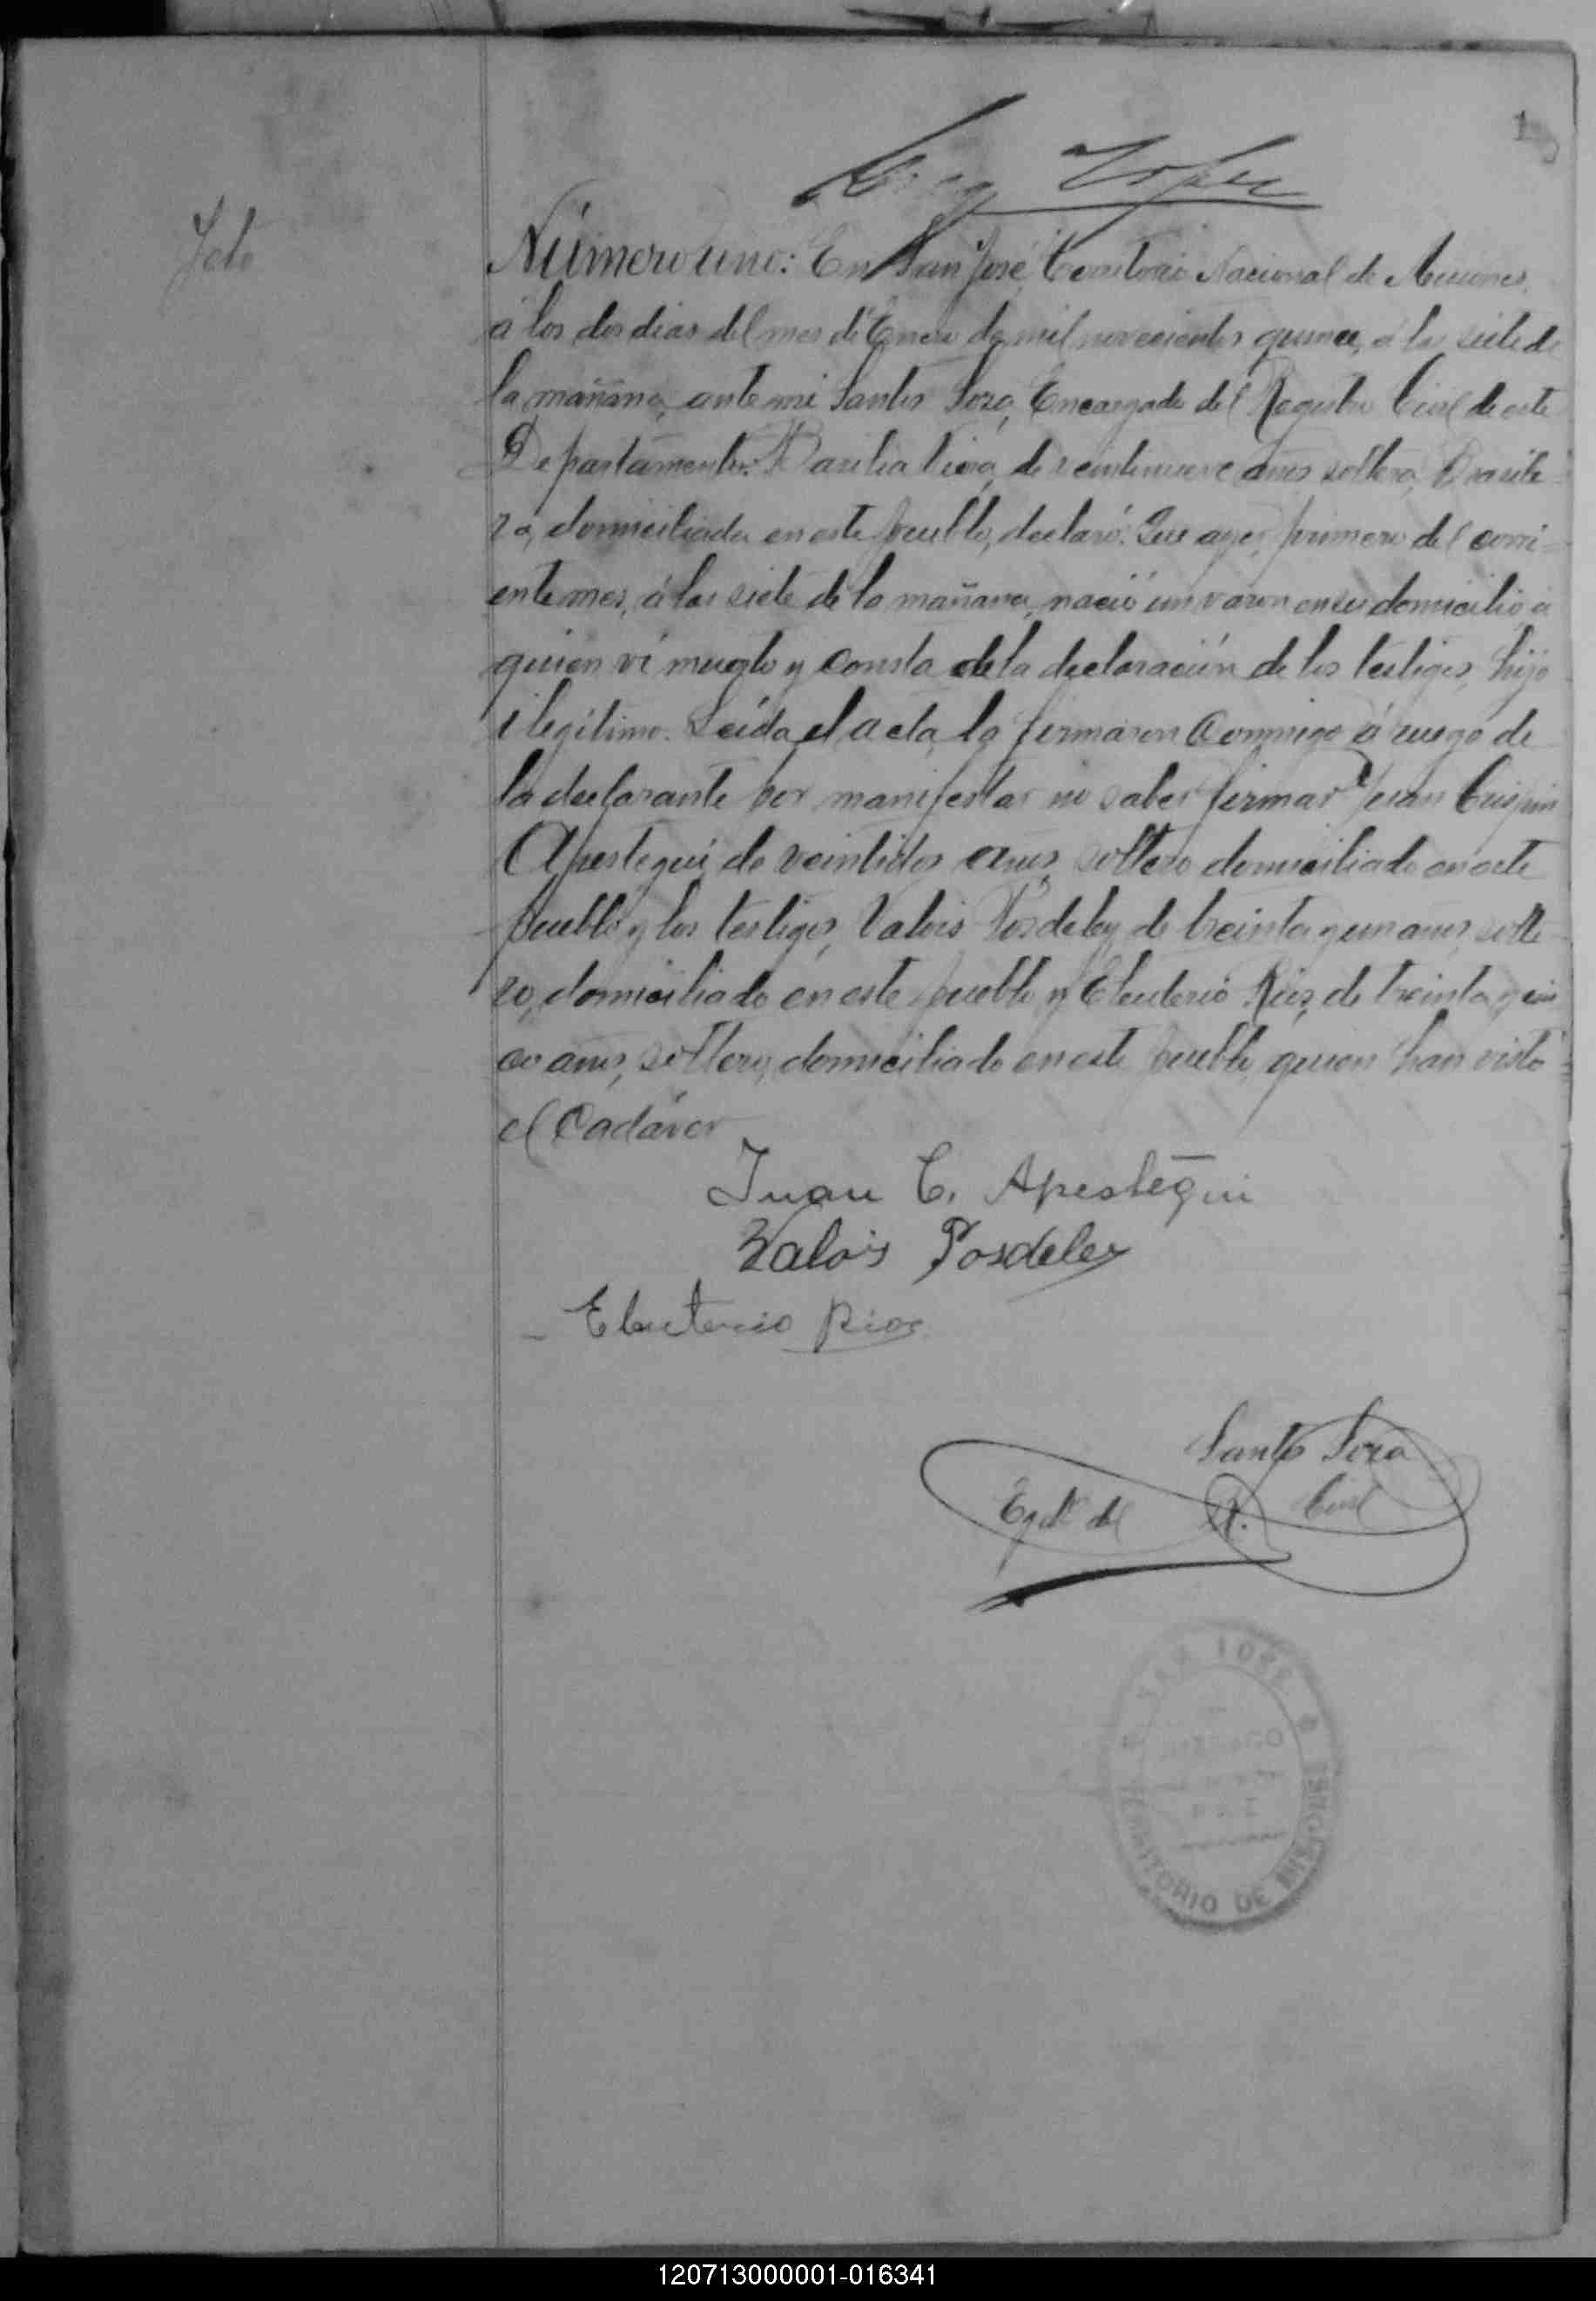 1
Feto
Número uno: En San José, Territorio Nacional de Misiones,
á los dos dias del mes de Enero de mil novecientos quince, á las siete de
la mañana, ante mi Santos Soza, Encargado del Registro Civil de este
Departamento: Basilia, de veintinueve años, soltera, Brasile-
ra, domiciliada en este pueblo, declaró: Que ayer, primero del corri-
ente mes, á las siete de la mañana, nació un varon en su domicilio, á
quien ví muerto y consta de la declaración de los testigos, hijo
ilegítimo. Leida el acta, la firmaron conmigo á ruego de
la declarante por manifestar no saber firmar Juan Crispin
Apestegui, de veintidos años, soltero domiciliado en este
pueblo y los testigos, Valois Posdeley de treinta y un años, solte-
ro, domiciliado en este pueblo y Eleuterio Rios, de treinta y cin
co años, soltero, domiciliado en este pueblo, quien han visto
el Cadáver
Juan C. Apestegui
Valois Posdeley
Eleuterio Rios
Santos Soza
Egdo del R. Civil
SAN JOSE
TERRITORIO DE MISIONES
120713000001-016341